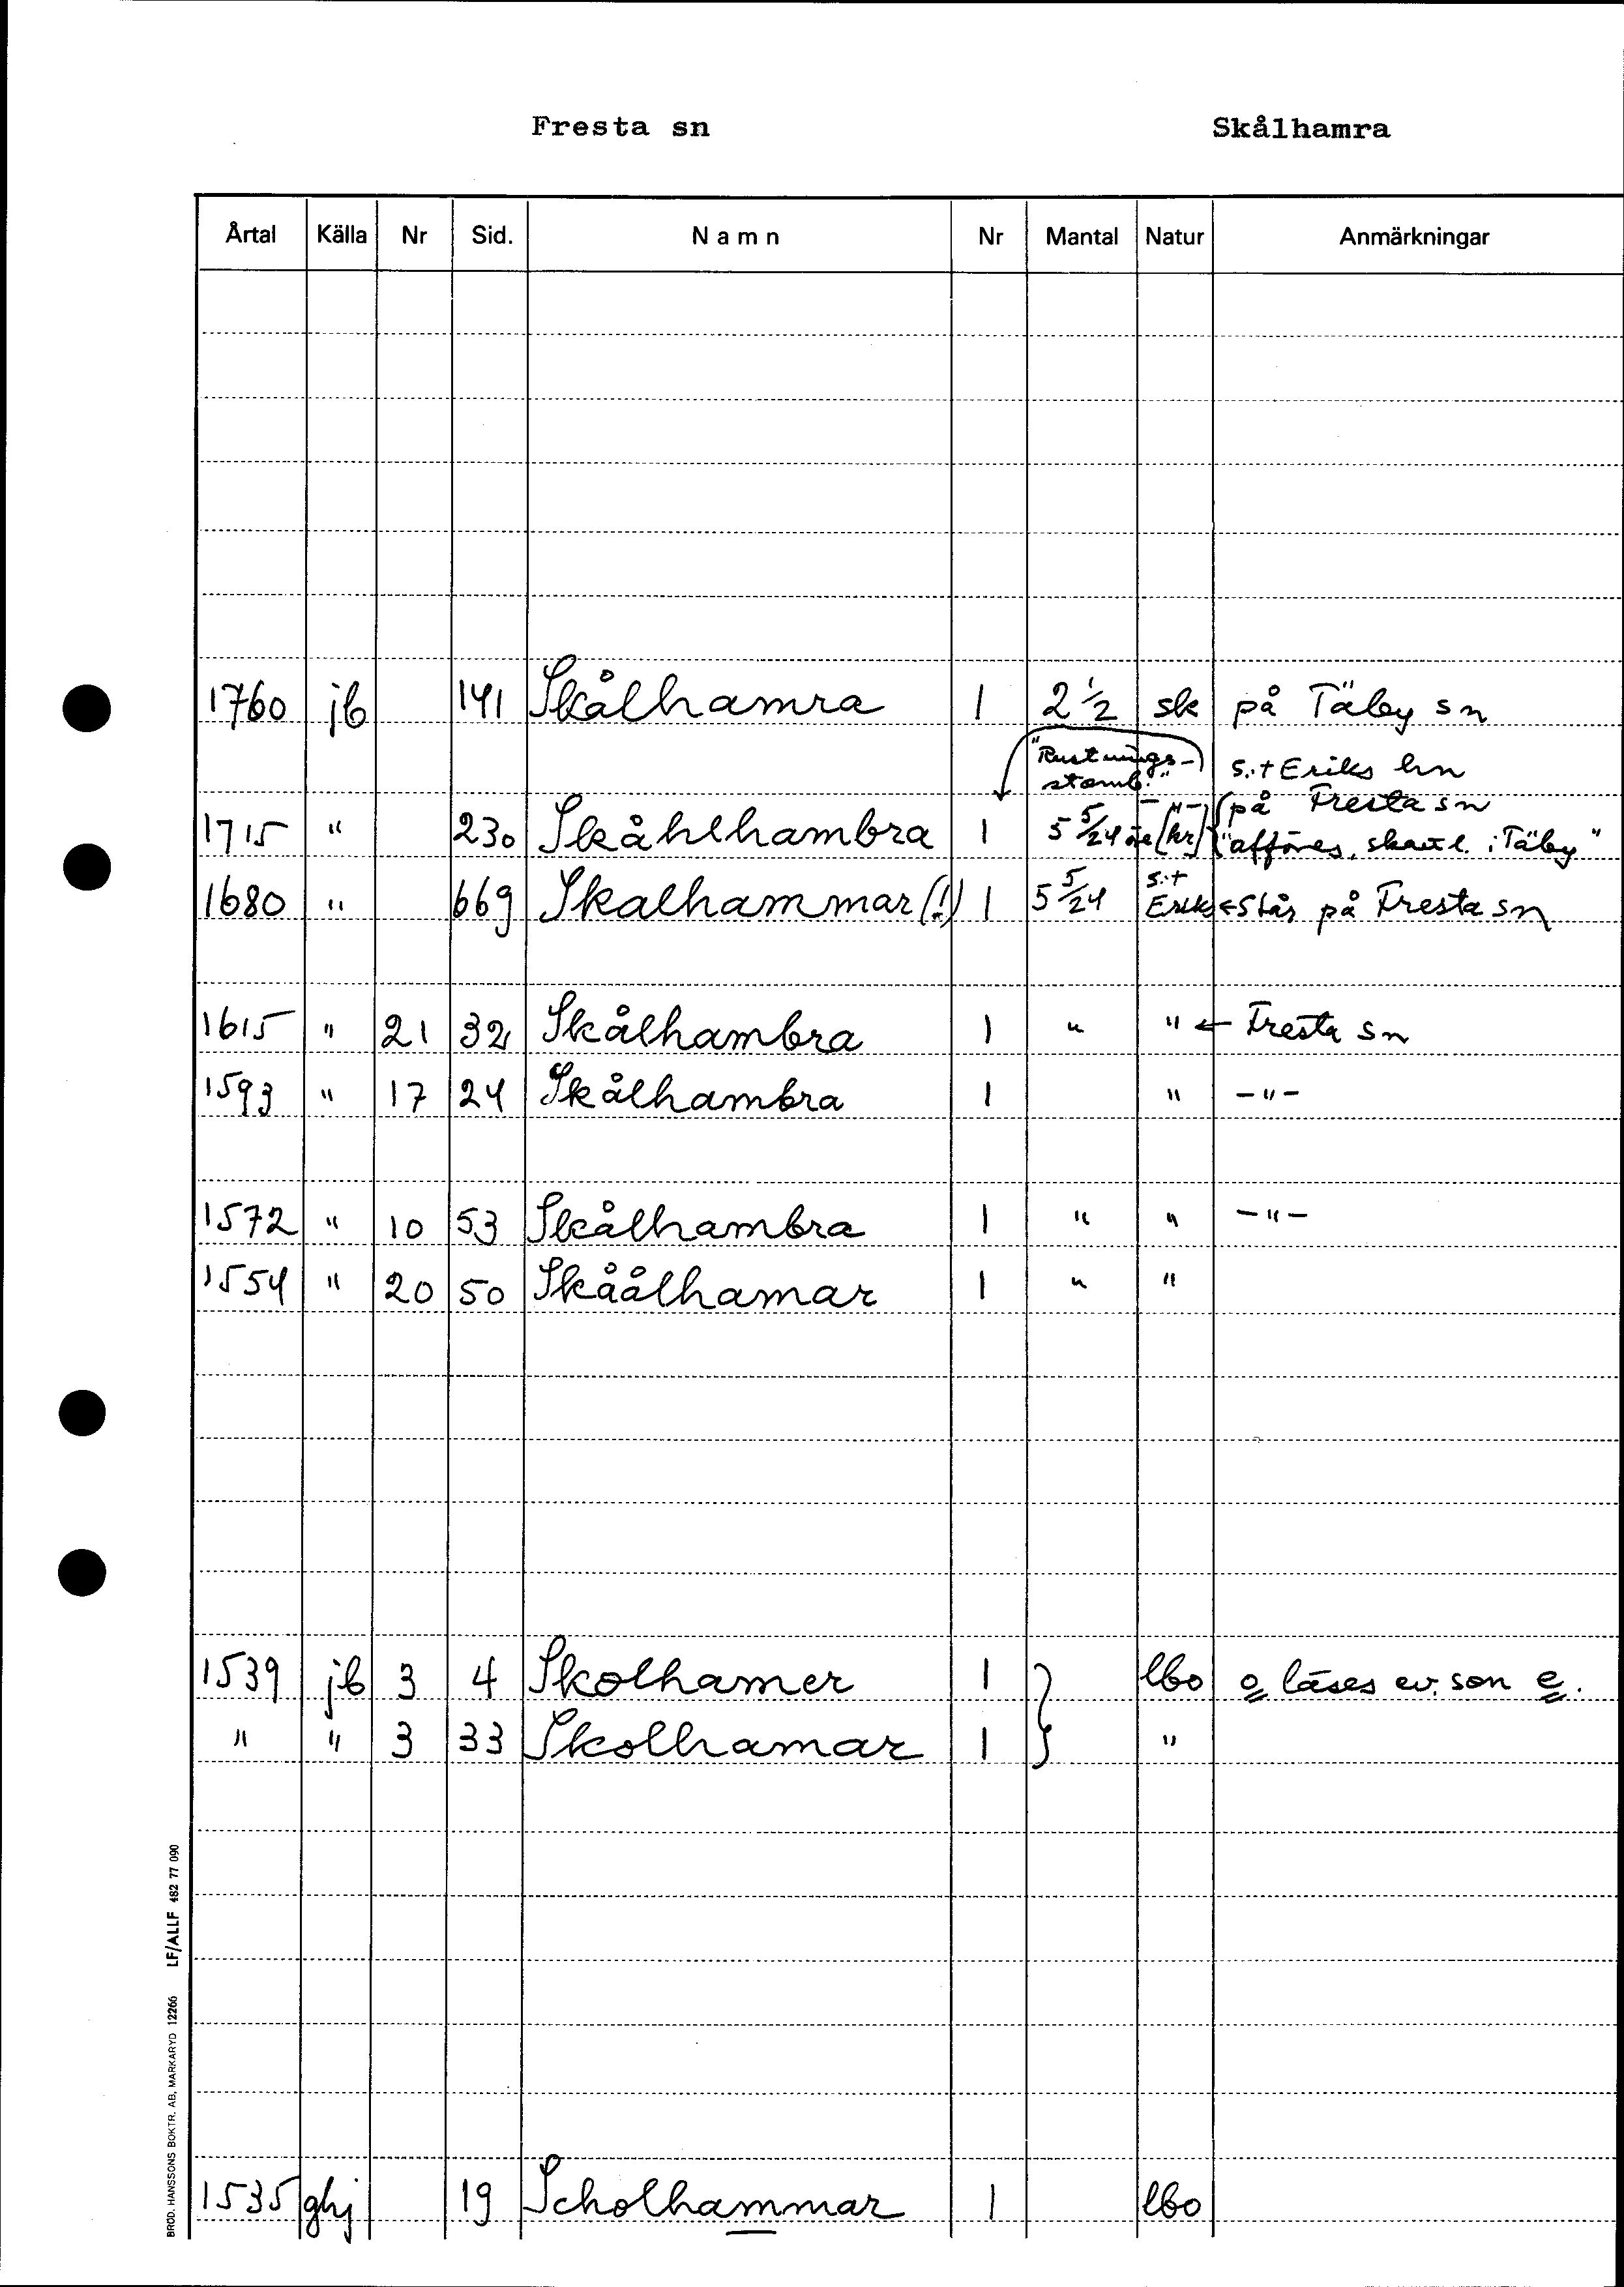 Fresta sn Skålhamra
Årtal Källa Nr Sid. Namn Nr Mantal Natur Anmärkningar
1760 jb 141 Skålhamra 1 2 1/2 sk på Täby sn
"Rustnings- s:t Eriks hn
stamb." -"- på Fresta sn
1715 " 230 Skåhlhambra 1 5 5/24 [kr] "afföres, i Täby"
1680 " 669 Skalhammar (!) 1 5 5/24 s:t Eriks ← står på Fresta sn
1615 " 21 32 Skålhambra 1 " " ← Fresta sn
1593 " 17 24 Skålhambra 1 " -"-
1572 " 10 53 Skålhambra 1 " " -"-
1554 " 20 50 Skåålhamar 1 " "
1539 jb 3 4 Skolhamer 1 } lbo o läses ev. som e.
" " 3 33 Skolhamar 1 "
1535 ghj 19 Scholhammar 1 lbo
BRÖD. HANSSONS BOKTR. AB, MARKARYD 12266 LF/ALLF 482 77 090